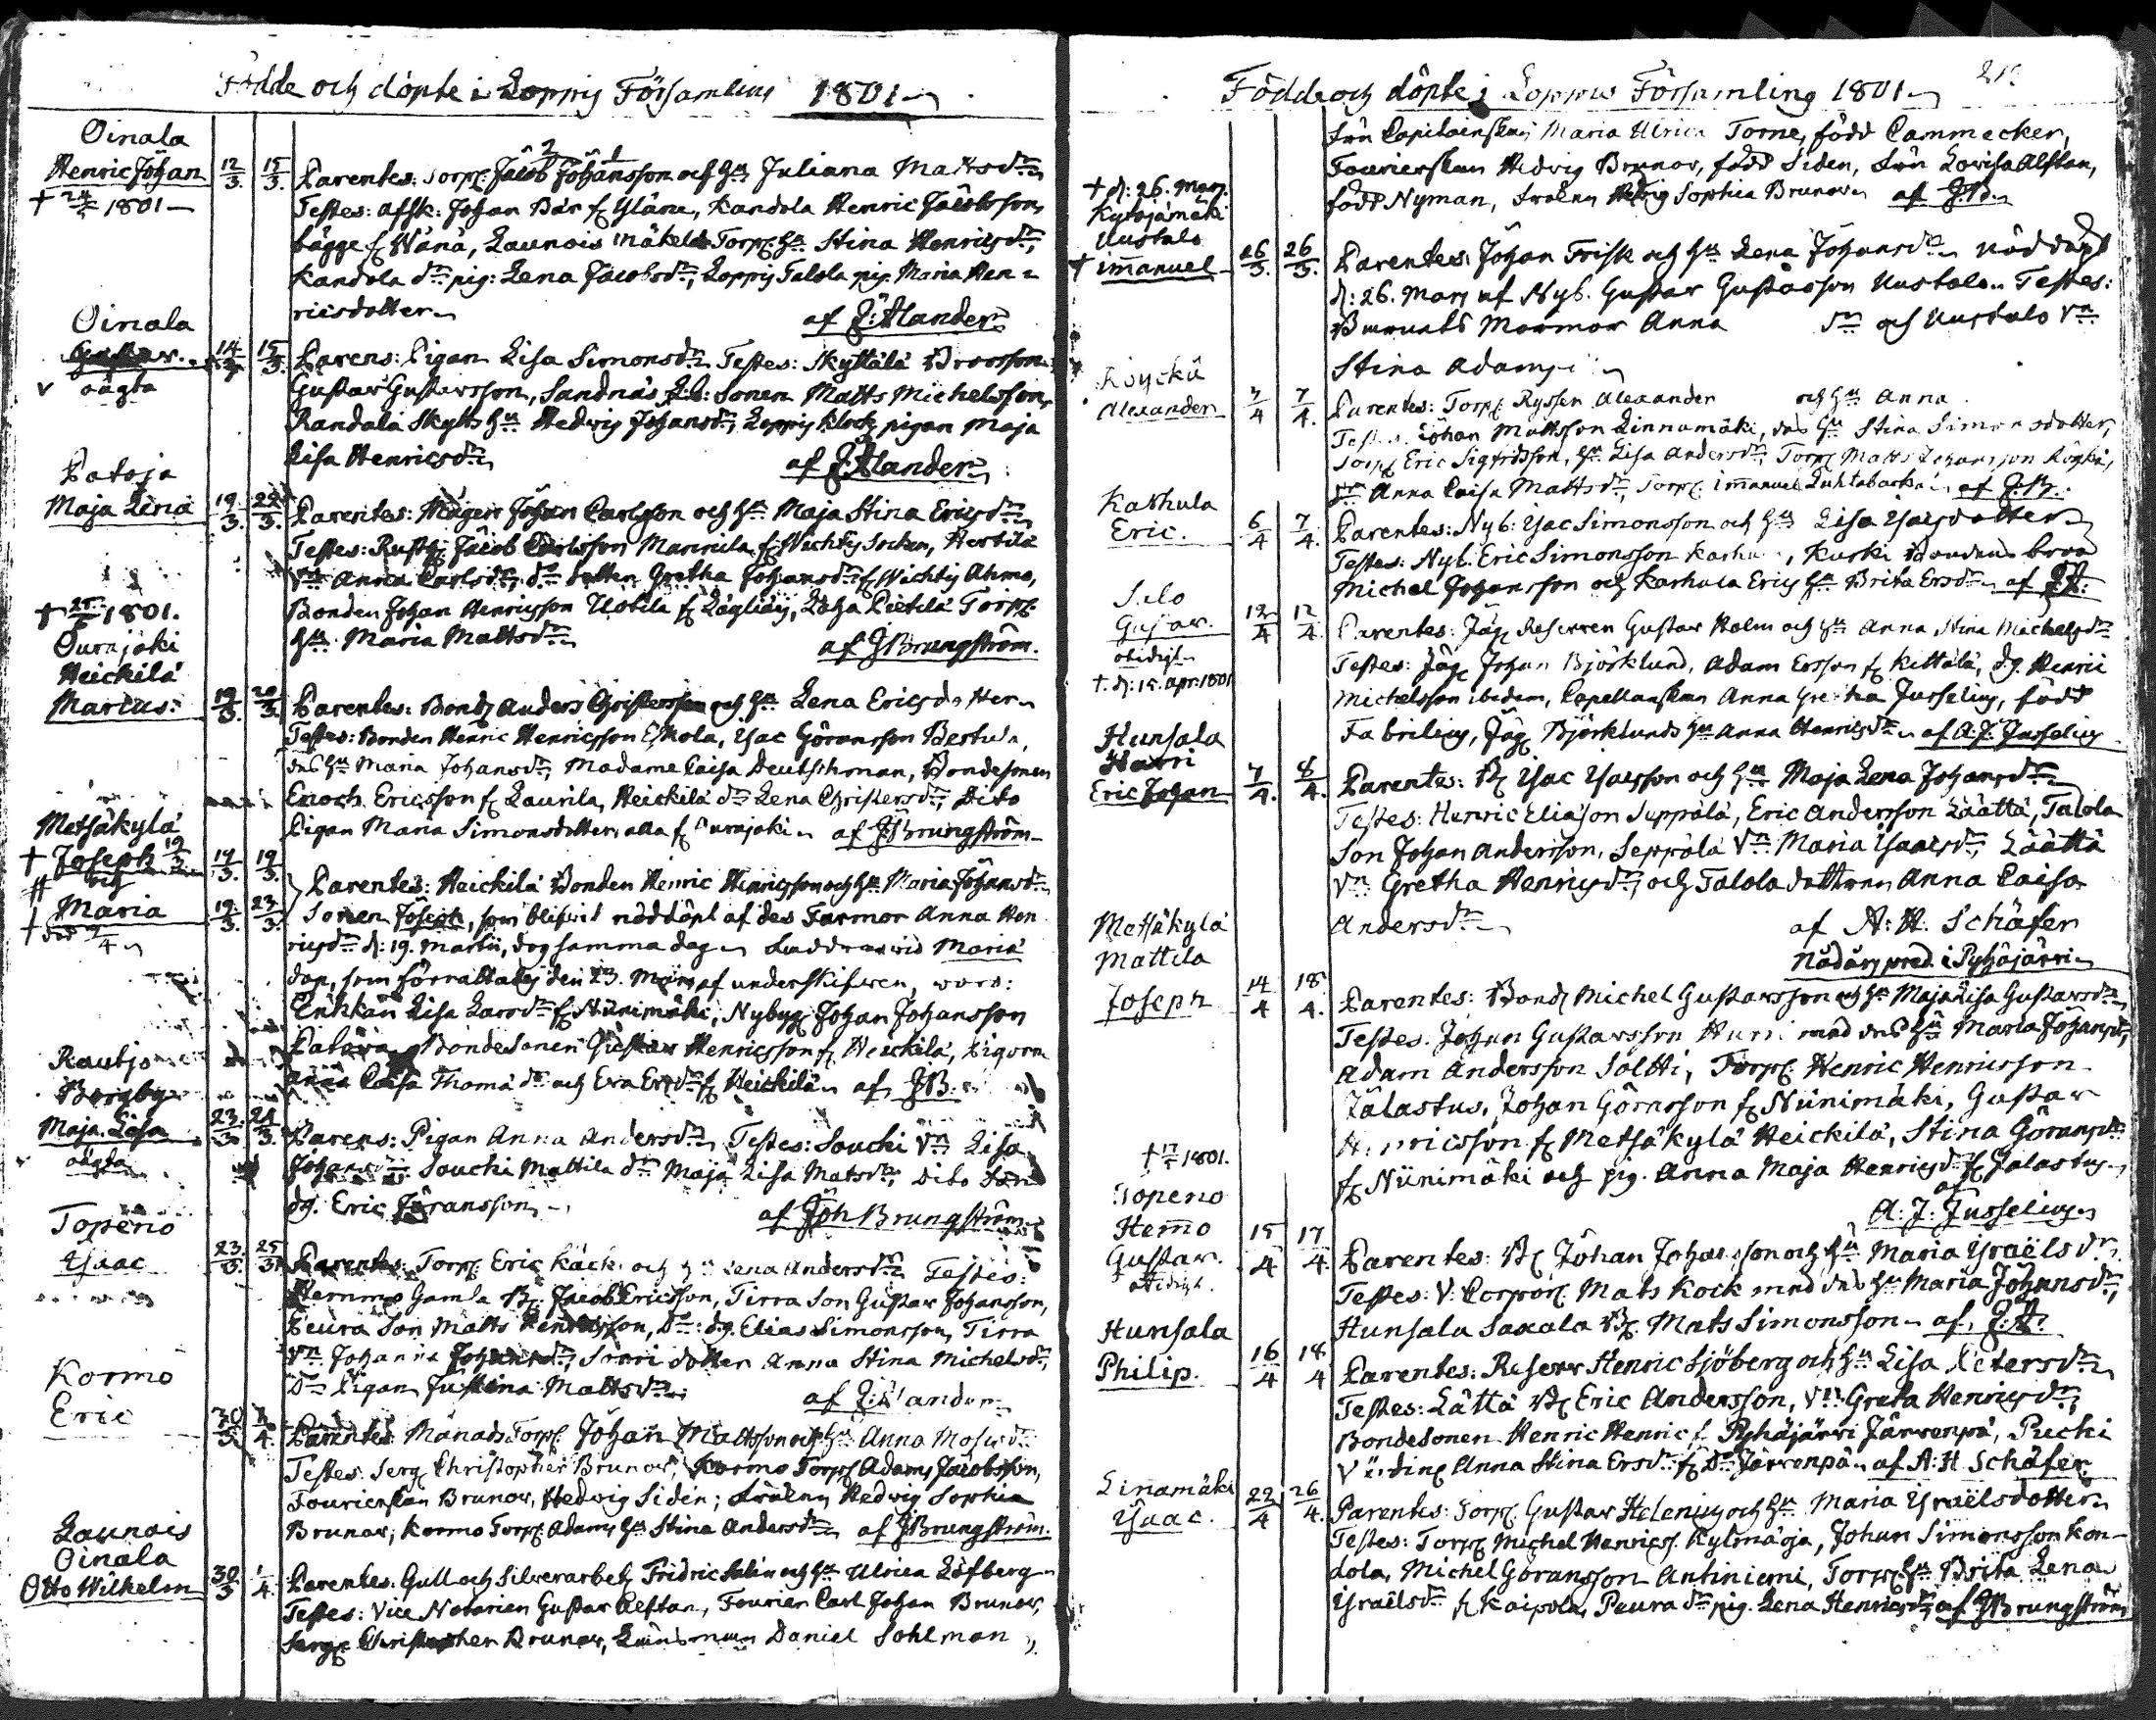 Födde och döpte i Loppis Församling 1801
Oinala
Henric Johan 12/3. 15/3. Parentes: Torp. Jacob Johansson och H:u Juliana Mattsd:r
† 1801 Testes: Afsk. Johan Bär f. Yläne, Kandola Henric Jacobsson,
bägge f. Wänä, Launois Mäkelä Torp. H:u Stina Henricsd:r,
Kandola d:r pig: Lena Jacobsd:r, Loppis Talola pig. Maria Hen=
ricsdotter af J: Alander
Oinala
Gustav. 14/3 15/3. Parens: Pigan Lisa Simonsd:r Testes: Skyttälä Brorsson
oägta Gustav Gustavsson, Sandnäs Sonen Matts Michelsson,
Randala Skytts H:u Hedwig Johansd:r, Loppis Klock. pigan Maja
Lisa Henricsd:r af J: Alander
Patoja
Maja Lena 19/3. 22/3. Parentes: Johan Carlsson och H:u Maja Stina Ericsd:r
Testes: Rusth. Jacob Carlsson Mannila f. Wichtis Socken, Hertilä
V:n Anna Carlsd:r, d:o dotter Gretha Johansd:r f. Wichtis Ahmo,
Bonden Johan Henricsson Uotila f. Lägliäis, Loha Pietilä Torp.
H:u Maria Mattsd:r af J Brungström.
† 1801.
Ourajoki
Heickilä
Marcus: 19/3. 20/3. Parentes: Bond. Anders Christersson och H:u Lena Ericsdotter
Testes: Bonden Henric Henricsson Eskola, Isac Göransson Bestula,
des H:u Maria Johansd:r, Madame Caisa Deutschman, Bondesonen
Enoch Ericsson f. Laurila, Heickilä d:r Lena Christersd:r, Dito
Pigan Maria Simonsdotter, alla f. Ourajoki af J: Brungström
Metsäkylä
† Joseph 19/3 17/3. 19/3. Parentes: Heickilä Bonden Henric Henricsson och H:u Maria Johansd:r
och
Maria 19/3. 23/3. Sonen Joseph, som blifwit nöddöpt af des Farmor Anna Hen
† ricsd:r d: 19. Martii, dog samma dag. Faddrar wid Maria
dop, som förrättades den 23. Mars af underskifwen, woro:
Enkkan Lisa Larsd:r f. Niinimäki, Nybyg. Johan Johansson
Bondesonen Gustav Henricsson f. Heickilä, Pigorne
Anna Caisa Thomæd:r och Eva Ersd:r f. Heickilä af J B.
Rautjo
Bergby
Maja Lisa 23/3 24/3. Parens: Pigan Anna Andersd:r Testes: Soucki V:n Lisa
oägta Johansd:r Soucki Mattila d:r Maja Lisa Matsd:r, Dito Son
dg. Eric Jöransson af Joh Brungström
Topeno
Isaac 23/3. 25/3. Parentes: Torp. Eric Käck och H:u Lena Andersd:r Testes:
Hemmo Gamla B. Jacob Ericsson, Tirra Son Gustav Johansson,
Peura Son Matts Henricsson, D:o dg. Elias Simonsson, Tirra
V:n Johanna Johansd:r, Sorri dotter Anna Stina Michelsd:r,
D:o Pigan Justina Mattsd:r af J: Alander
Kormo
Eric 30/3 1/4. Parentes: Månads Torp. Johan Mattsson och H:u Anna Mosesd:r
Testes: Serg. Christopher Brunow, Kormo Torp. Adam Jacobsson,
Fourierskan Brunow, Hedwig Siden; Fröken Hedwig Sophia
Brunow; Kormo Torp. Adams H:u Stina Andersd:r af J Brungström.
Launois
Oinala
Otto Wilhelm 30/3 1/4. Parentes: Gull och Silwerarbet. Fridric Salin och H:u Ulrica Löfberg
Testes: Vice Notarien Gustav Alftan, Fourier Carl Johan Brunow,
Serg. Christopher Brunow, Länsman Daniel Sohlman
Födde och döpte i Loppis Församling 1801
Frü Capitainskan Maria Ulrica Torne, född Cammecker,
Fourierskan Hedvig Brunow, född Siden, Frü Lovisa Alftan,
född Nyman, Fröken Hedvig Sophia Brunow af J B.
† d: 26. Mars.
Kylmämäki
Uustalo
† immanuel 26/3. 26/3. Parentes: Johan Frisk och H:u Lena Johansd:r nöddöpt
d: 26. Mars af Nyb. Gustav Gustavsson Uustalo. Testes:
Barnets Mormor Anna d:r och Uustalo V:n
Stina Adams
Röyckä
Alexander 7/4 7/4. Parentes: Torp. Ryssen Alexander och H:u Anna
Testes: Johan Mattsson Linnamäki, des H:u Stina Simonsdotter,
Torp. Eric Sigfridsson, H:u Lisa Andersd:r, Torp. Matts Johansson Röykä,
V:n Anna Caisa Mattsd:r, Torp. immanuel Luhtabacka af J. B.
Karhula
Eric. 6/4 7/4. Parentes: Nyb: Isac Simonsson och H:u Lisa Isacsdotter
Testes: Nyb. Eric Simonsson Karhu, Kurki Bondens bror
Michel Johansson och Karhula Erics H:u Brita Ersd:r af J A.
Silo
Gustav. 12/4 12/4. Parentes: Jäg. Reserven Gustav Holm och H:u Anna Stina Michelsd:r
Testes: Jäg. Johan Björklund, Adam Ersson f. Kettälä, dg. Henric
† d: 15. Apr. 1801 Michelsson ibedem, Capellanskan Anna Gretha Jusselius, född
Fabrilius, Jäg. Björklunds H:u Anna Henricsd:r af A. J. Jusselius
Hunsala
Hatri
Eric Johan 7/4. 8/4. Parentes: B. Isac Isacsson och H:u Maja Lena Johansd:r
Testes: Henric Eliasson Seppälä, Eric Andersson Läättä, Talola
Son Johan Andersson, Seppälä V:n Maria Isacsd:r, Läättä
V:n Gretha Henricsd:r och Talola dottren Anna Caisa
Andersd:r af A: H: Schäfer
Nådårs pred. i Pyhäjärvi
Metsäkylä
Mattila
Joseph 14/4 18/4. Parentes: Bond. Michel Gustavsson och H:u Maja Lisa Gustavsd:r
Testes: Johan Gustavsson Hurri med des H:u Maria Johansd:r,
Adam Andersson Soltti, Torp. Henric Henricsson
Jälastus, Johan Göransson f. Niinimäki, Gustav
Henricsson f. Metsäkylä Heickilä, Stina Göransd:r
f. Niinimäki och pig. Anna Maja Henricsd:r f. Jalastus
af A: J: Jusselius
† 17/4 1801.
Topeno
Hemmo
Gustav. 15/4 17/4. Parentes: B. Johan Johansson och H:u Maria Israëlsd:r
Testes: V. Corporal Mats Kock med des H:u Maria Johansd:r,
Hunsala Saxala B. Mats Simonsson af J. A.
Hunsala
Philip. 16/4 18/4 Parentes: Reserv Henric Sjöberg och H:u Lisa Petersd:r
Testes: Lättä B. Eric Andersson, V:n Greta Henricsd:r,
Bondesonen Henric Henric f. Pyhäjärvi Järvenpä, Pucki
Värdin. Anna Stina Ersd:r f. D:o Järvenpä af A. H. Schäfer
Linamäki
Isaac. 22/4 26/4. Parentes: Torp. Gustav Helenius och H:u Maria Israëlsdotter
Testes: Torp. Michel Henrics. Kylmäoja, Johan Simonsson Kon-
dola, Michel Göransson Antiniemi, Torp. H:u Brita Lena
Israëlsd:r f. Kaipola, Peura d:r pig. Lena Henricsd:r af J Brungström